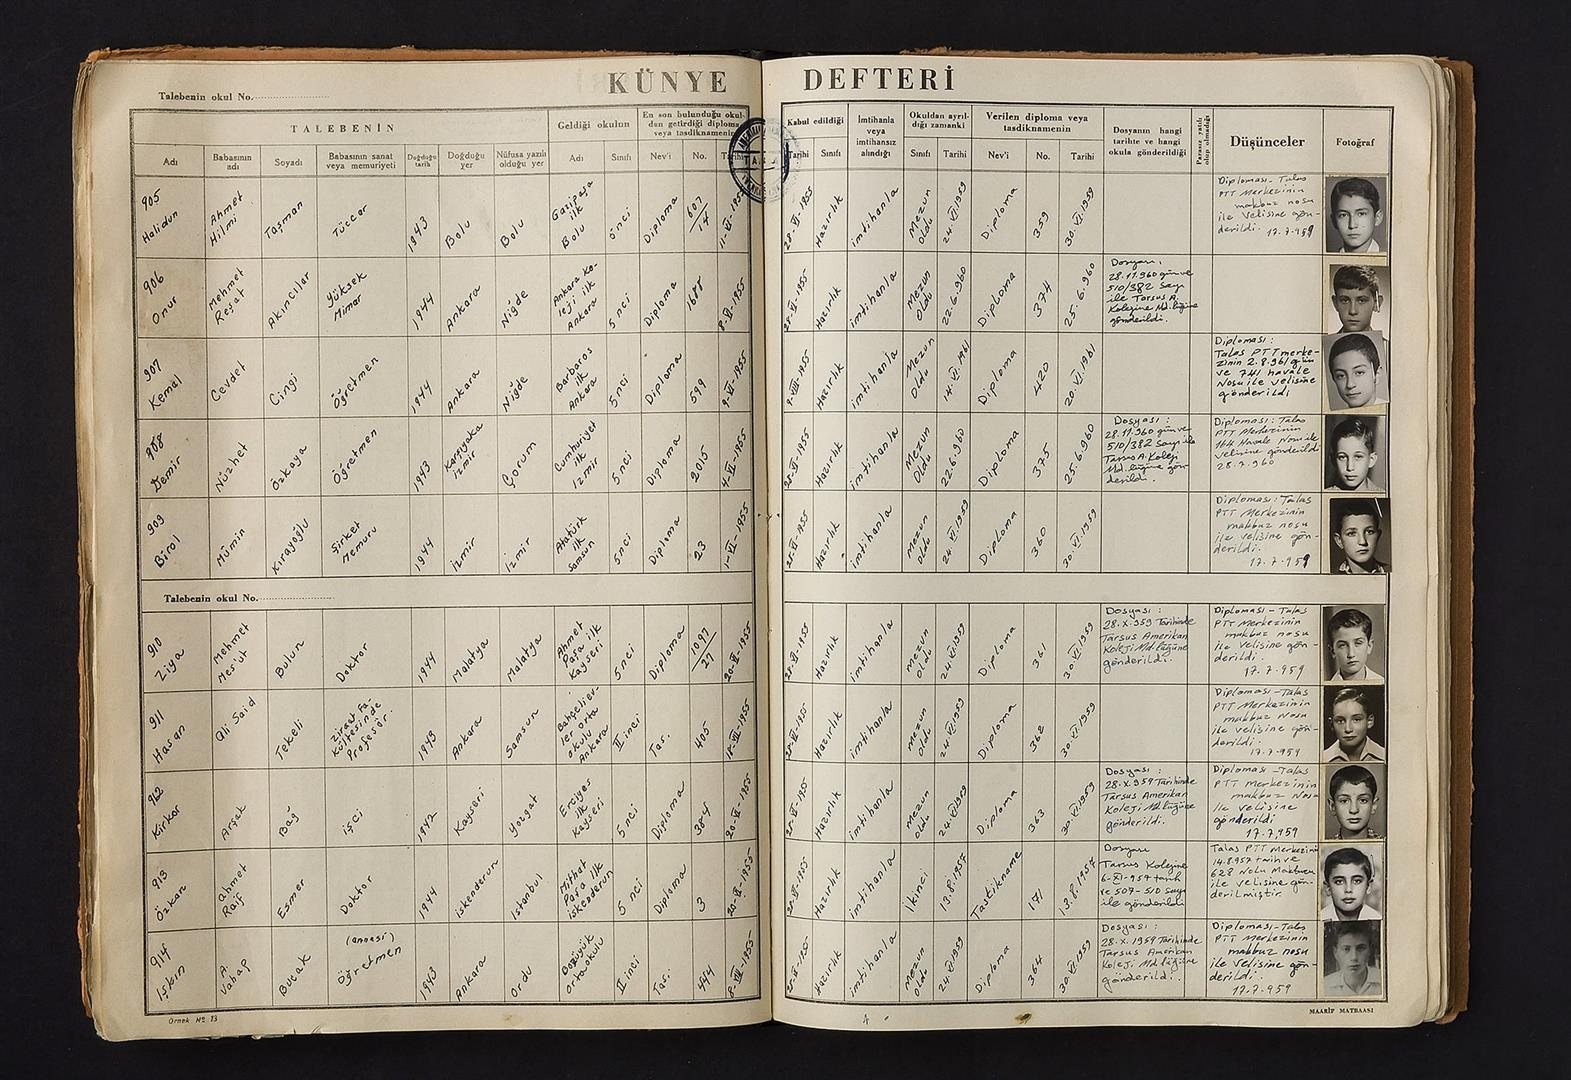 KÜNYE DEFTERİ
Talebenin okul No.
TALEBENİN
Geldiği okulun
En son bulunduğu okul-
dan getirdiği diploma
veya tasdiknamenin
Kabul edildiği
İmtihanla
veya
imtihansız
alındığı
Okuldan ayrıl-
dığı zamanki
Verilen diploma veya
tasdiknamenin
Dosyanın hangi
tarihte ve hangi
okula gönderildiği
Parasız yatılı
olup olmadığı
Düşünceler
Fotoğraf
Adı
Babasının
adı
Soyadı
Babasının sanat
veya memuriyeti
Doğduğu
tarih
Doğduğu
yer
Nüfusa yazılı
olduğu yer
Adı
Sınıfı
Nev'i
No.
Tarihi
Tarihi
Sınıfı
Sınıfı
Tarihi
Nev'i
No.
Tarihi
905
Halidun
Ahmet
Hilmi
Taşman
Tüccar
1943
Bolu
Bolu
Gazipaşa
ilk
Bolu
5nci
Diploma
607/14
11-VI-1955
28-VI-1955
Hazırlık
imtihanla
Mezun
Oldu
24.VI.1959
Diploma
359
30.VI.1959
Diploması-Talas
PTT Merkezinin
makbuz nosu
ile Velisine gön-
derildi. 17.7.959
906
Onur
Mehmet
Reşat
Akıncılar
Yüksek
Mimar
1944
Ankara
Niğde
Ankara Ko-
leji ilk
Ankara
5nci
Diploma
1688
8-VI-1955
28-VI-1955
Hazırlık
imtihanla
Mezun
Oldu
22.6.960
Diploma
374
25.6.960
Dosyası,
28.11.960 gün ve
510/382 Sayı
ile Tarsus A.
Kolejine Md.lüğüne
gönderildi.
907
Kemal
Cevdet
Cingi
Öğretmen
1944
Ankara
Niğde
Barbaros
ilk
Ankara
5nci
Diploma
599
9-VI-1955
9-VIII-1955
Hazırlık
imtihanla
Mezun
Oldu
14.VI.1961
Diploma
420
20.VI.1961
Diploması:
Talas PTT merke-
zinin 2.8.961 gün
ve 741 havale
Nosu ile velisine
gönderildi
908
Demir
Nüzhet
Özkaya
Öğretmen
1943
Karşıyaka
İzmir
Çorum
Cumhuriyet
ilk
İzmir
5nci
Diploma
2015
4-VI-1955
28-VI-1955
Hazırlık
imtihanla
Mezun
Oldu
22.6.960
Diploma
375
25.6.960
Dosyası:
28.11.960 gün ve
510/382 Sayı ile
Tarsus A.Koleji
Md.lüğüne gön-
derildi.
Diploması: Talas
PTT Merkezinin
164 Havale Nosu ile
velisine gönderildi
28.7.960
909
Birol
Mümin
Kırayoğlu
Şirket
Memuru
1944
İzmir
İzmir
Atatürk
ilk
Samsun
5nci
Diploma
23
1-VI-1955
28-VI-1955
Hazırlık
imtihanla
mezun
Oldu
24.VI.1959
Diploma
360
30.VI.1959
Diploması: Talas
PTT Merkezinin
makbuz nosu
ile velisine gön-
derildi.
17.7.959
Talebenin okul No.
910
Ziya
Mehmet
Mes'ut
Bulun
Doktor
1944
Malatya
Malatya
Ahmet
Paşa ilk
Kayseri
5nci
Diploma
1097/27
20-VI-1955
28-VI-1955
Hazırlık
imtihanla
Mezun
Oldu
24.VI.1959
Diploma
361
30.VI.1959
Dosyası:
28.X.959 Tarihinde
Tarsus Amerikan
Koleji Md.lüğüne
gönderildi.
Diploması-Talas
PTT Merkezinin
makbuz nosu
ile Velisine gön-
derildi.
17.7.959
911
Hasan
Ali Said
Tekeli
Ziraat Fa-
kültesinde
Profesör.
1943
Ankara
Samsun
Bahçeliev-
ler orta
okulu
Ankara
II inci
Tas.
405
Hazırlık
imtihanla
Mezun
Oldu
24.VI.1959
Diploma
362
30.VI.1959
Diploması-Talas
PTT Merkezinin
makbuz Nosu
ile velisine gön-
derildi.
17.7.959
912
Kirkor
Arşak
Bağ
işçi
1942
Kayseri
Yozgat
Erciyes
ilk
Kayseri
5nci
Diploma
384
20-VI-1955
28-VI-1955
Hazırlık
imtihanla
Mezun
Oldu
24.VI.1959
Diploma
363
30.VI.1959
Dosyası:
28.X.959 Tarihinde
Tarsus Amerikan
Koleji Md.lüğüne
gönderildi.
Diploması-Talas
PTT Merkezinin
makbuz Nosu
ile Velisine
gönderildi
17.7.959
913
Özkan
Ahmet
Raif
Esmer
Doktor
1944
İskenderun
İstanbul
Mithat
Paşa ilk
İskenderun
5nci
Diploma
3
20-VI-1955
Hazırlık
imtihanla
İkinci
13.8.1957
Tastikname
171
13.8.1957
Dosyası
Tarsus Kolejine
6-XI-957 tarih
ve 507-510 sayı
ile gönderildi
Talas PTT Merkezinin
14.8.957 tarih ve
628 Nolu Makbuzu
ile velisine gön-
derilmiştir.
914
Işkın
A.
Vahap
Bucak
(annesi)
Öğretmen
1943
Ankara
Ordu
Bozüyük
ortaokulu
II inci
Tas.
494
8-VIII-1955
Hazırlık
imtihanla
Mezun
Oldu
24.VI.1959
Diploma
364
30.VI.1959
Dosyası:
28.X.1959 Tarihinde
Tarsus Amerikan
Koleji Md.lüğüne
gönderildi.
Diploması-Talas
PTT Merkezinin
makbuz nosu
ile Velisine gön-
derildi.
17.7.959
Örnek No 13
MAARİF MATBAASI